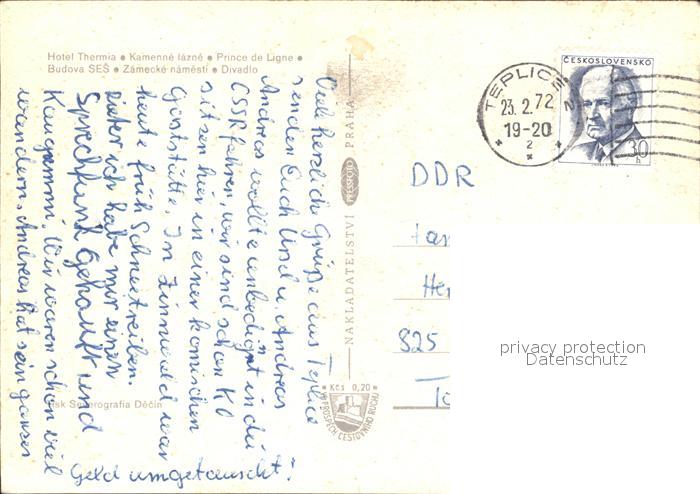 Hotel Thermia • Kamenné lázně • Prince de Ligne •
Budova SEŠ • Zámecké náměstí • Divadlo
Viele herzliche Grüße aus Teplice
senden Euch Uschi u. Andreas
Andreas wollte unbedingt in die
CSSR fahren, wir sind schon
sitzen hier in einer komischen
Gaststätte. In Zinnwald war
heute früh Schneetreiben.
ich habe mir einen
Sprechfunk gekauft und
Kaugummi. Wir waren schon viel
wandern, Andreas hat sein ganzes
Geld umgetauscht!
Tisk Severografia Děčín
NAKLADATELSTVÍ PRESSFOTO PRAHA
Kčs 0,20
VE PROSPĚCH CESTOVNÍHO RUCHU
TEPLICE 2
23.2.72
19-20
2
ČESKOSLOVENSKO
30 h
DDR
825
privacy protection
Datenschutz